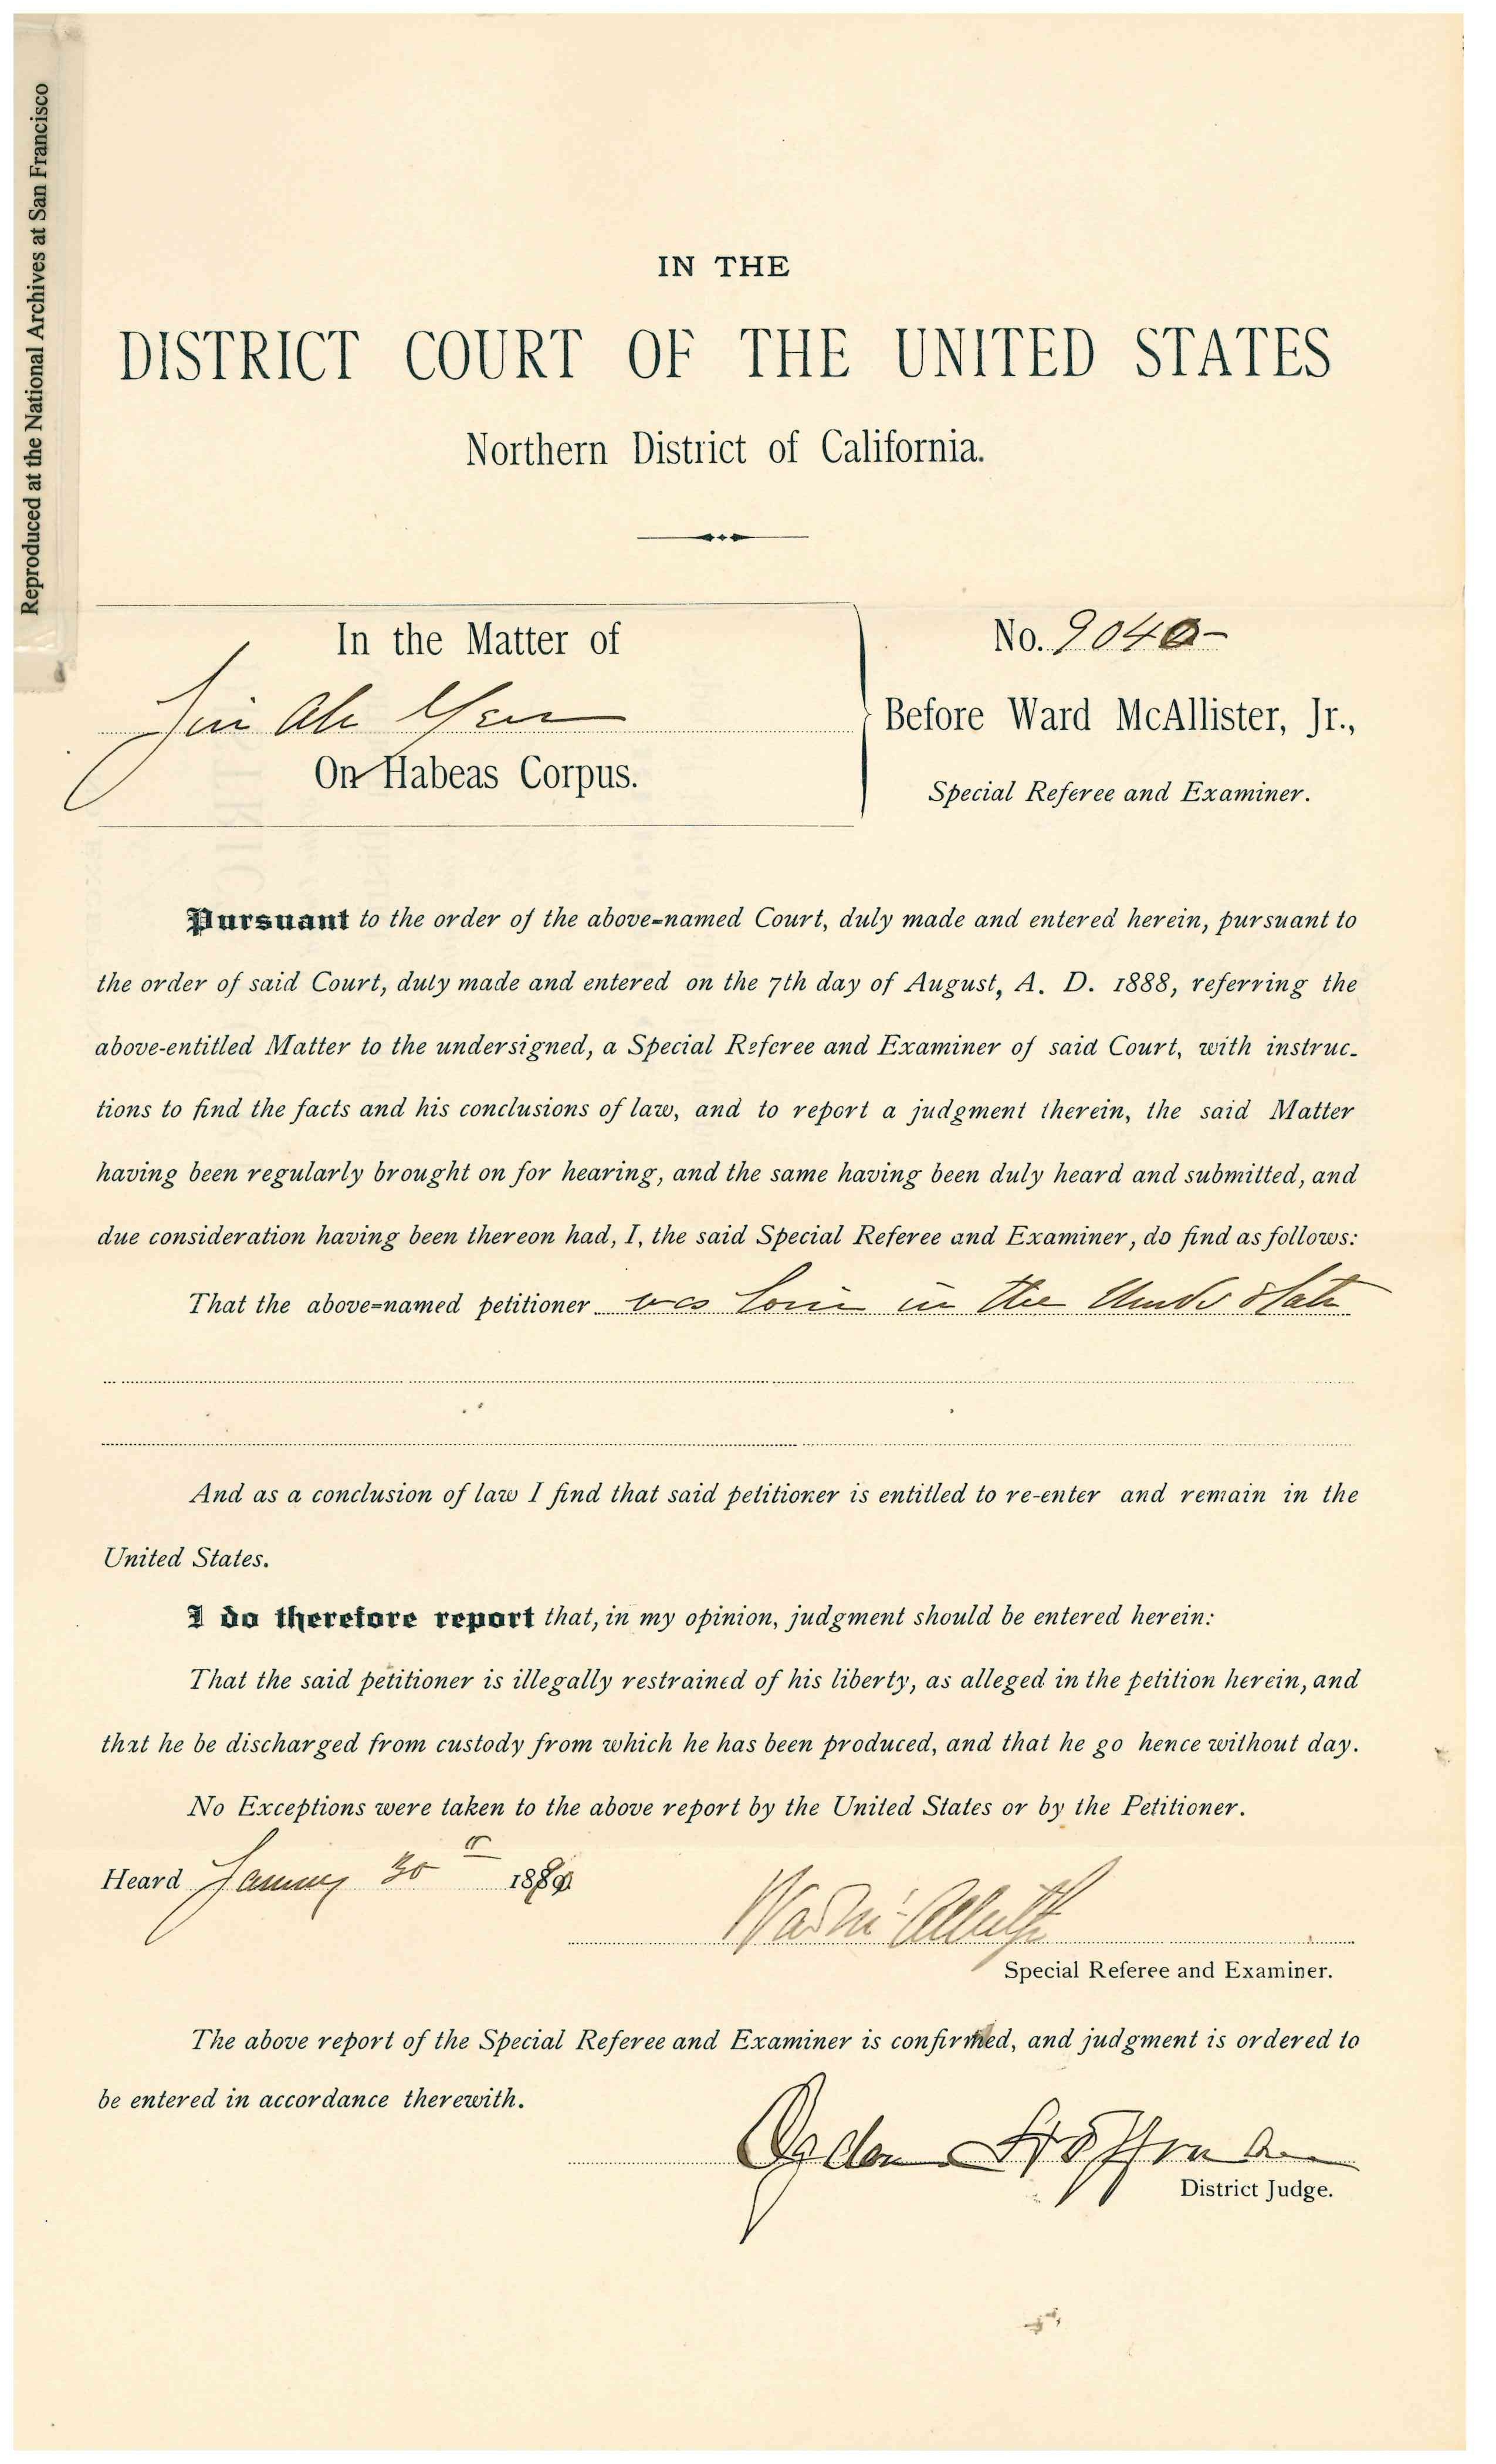 Reproduced at the National Archives at San Francisco
IN THE
DISTRICT COURT OF THE UNITED STATES
Northern District of California.
In the Matter of
Ah
On Habeas Corpus.
No.
Before Ward McAllister, Jr.,
Special Referee and Examiner.
Pursuant to the order of the above-named Court, duly made and entered herein, pursuant to
the order of said Court, duly made and entered on the 7th day of August, A. D. 1888, referring the
above-entitled Matter to the undersigned, a Special Referee and Examiner of said Court, with instruc-
tions to find the facts and his conclusions of law, and to report a judgment therein, the said Matter
having been regularly brought on for hearing, and the same having been duly heard and submitted, and
due consideration having been thereon had, I, the said Special Referee and Examiner, do find as follows:
That the above-named petitioner was born in the United States
And as a conclusion of law I find that said petitioner is entitled to re-enter and remain in the
United States.
I do therefore report that, in my opinion, judgment should be entered herein:
That the said petitioner is illegally restrained of his liberty, as alleged in the petition herein, and
that he be discharged from custody from which he has been produced, and that he go hence without day.
No Exceptions were taken to the above report by the United States or by the Petitioner.
Heard January 30th 1889
Ward McAllister
Special Referee and Examiner.
The above report of the Special Referee and Examiner is confirmed, and judgment is ordered to
be entered in accordance therewith.
Ogden Hoffman
District Judge.